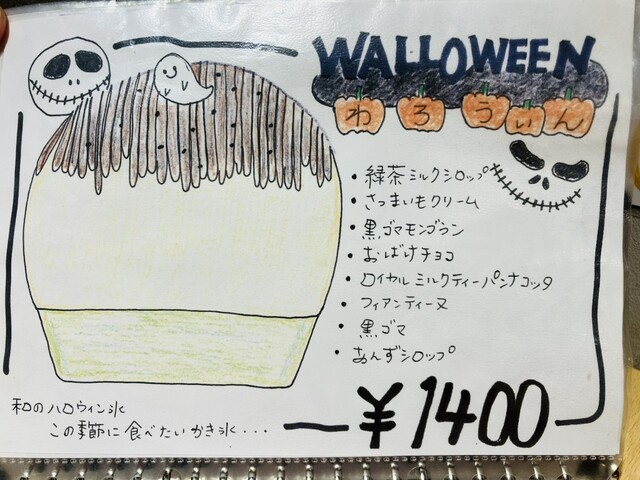 WALLOWEEN
わろうぃん
・緑茶ミルクシロップ
・さつまいもクリーム
・黒ゴマモンブラン
・おばけチョコ
・ロイヤルミルクティーパンナコッタ
・フィアンティーヌ
・黒ゴマ
・あんずシロップ
¥1400
和のハロウィン氷
この季節に食べたいかき氷...